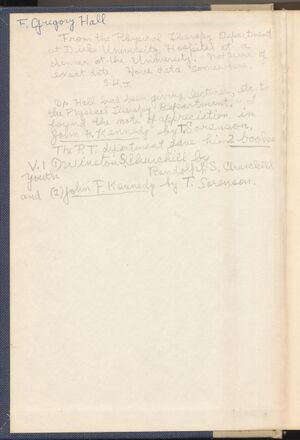 F. Gregory Hall
From the Physical Therapy Department
at Duke University Hospital at a
dinner at the University. Not sure of
exact date. Have data somewhere.
Dr. Hall had been giving lectures, etc. to
the Physical Therapy Department,
copied the note of appreciation in
John F. Kennedy by T. Sorenson,
The P.T. department gave him 2 books
V.1 (1) Winston S. Churchill by
Youth Randolph S. Churchill
and (2) John F. Kennedy by T. Sorenson.